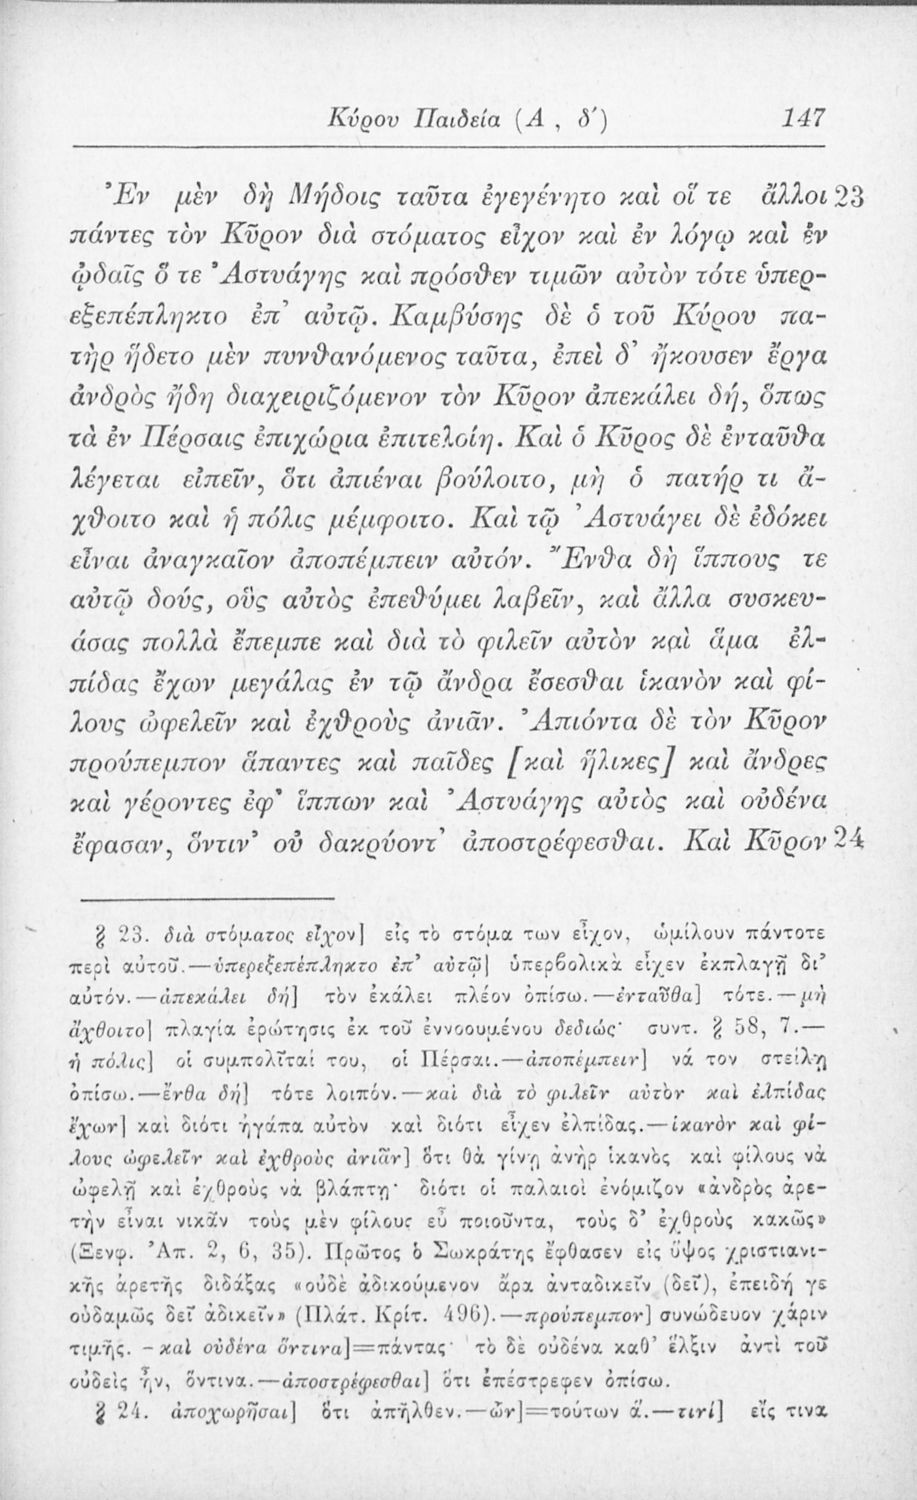 Κύρου Παιδεία (Α , δ′) 147
Ἐν μὲν δὴ Μήδοις ταῦτα ἐγεγένητο καὶ οἵ τε ἄλλοι 23
πάντες τὸν Κῦρον διὰ στόματος εἶχον καὶ ἐν λόγῳ καὶ ἐν
ᾠδαῖς ὅ τε Ἀστυάγης καὶ πρόσθεν τιμῶν αὐτὸν τότε ὑπερ-
εξεπέπληκτο ἐπ᾿ αὐτῷ. Καμβύσης δὲ ὁ τοῦ Κύρου πα-
τὴρ ἥδετο μὲν πυνθανόμενος ταῦτα, ἐπεὶ δ᾿ ἤκουσεν ἔργα
ἀνδρὸς ἤδη διαχειριζόμενον τὸν Κῦρον ἀπεκάλει δή, ὅπως
τὰ ἐν Πέρσαις ἐπιχώρια ἐπιτελοίη. Καὶ ὁ Κῦρος δὲ ἐνταῦθα
λέγεται εἰπεῖν, ὅτι ἀπιέναι βούλοιτο, μὴ ὁ πατήρ τι ἄ-
χθοιτο καὶ ἡ πόλις μέμφοιτο. Καὶ τῷ Ἀστυάγει δὲ ἐδόκει
εἶναι ἀναγκαῖον ἀποπέμπειν αὐτόν. Ἔνθα δὴ ἵππους τε
αὐτῷ δούς, οὓς αὐτὸς ἐπεθύμει λαβεῖν, καὶ ἄλλα συσκευ-
άσας πολλὰ ἔπεμπε καὶ διὰ τὸ φιλεῖν αὐτὸν καὶ ἅμα ἐλ-
πίδας ἔχων μεγάλας ἐν τῷ ἄνδρα ἔσεσθαι ἱκανὸν καὶ φί-
λους ὠφελεῖν καὶ ἐχθροὺς ἀνιᾶν. Ἀπιόντα δὲ τὸν Κῦρον
προύπεμπον ἅπαντες καὶ παῖδες [καὶ ἥλικες] καὶ ἄνδρες
καὶ γέροντες ἐφ᾿ ἵππων καὶ Ἀστυάγης αὐτὸς καὶ οὐδένα
ἔφασαν, ὅντιν᾿ οὐ δακρύοντ᾿ ἀποστρέφεσθαι. Καὶ Κῦρον 24
§ 23. διὰ στόματος εἶχον] εἰς τὸ στόμα των εἶχον, ὡμίλουν πάντοτε
περὶ αὐτοῦ.—ὑπερεξεπέπληκτο ἐπ᾿ αὐτῷ] ὑπερβολικὰ εἶχεν ἐκπλαγῆ δι᾿
αὐτόν.—ἀπεκάλει δή] τὸν ἐκάλει πλέον ὀπίσω.—ἐνταῦθα] τότε.—μὴ
ἄχθοιτο] πλαγία ἐρώτησις ἐκ τοῦ ἐννοουμένου δεδιώς· συντ. § 58, 7.—
ἡ πόλις] οἱ συμπολῖταί του, οἱ Πέρσαι.—ἀποπέμπειν] νά τον στείλῃ
ὀπίσω.—ἔνθα δή] τότε λοιπόν.—καὶ διὰ τὸ φιλεῖν αὐτὸν καὶ ἐλπίδας
ἔχων] καὶ διότι ἠγάπα αὐτὸν καὶ διότι εἶχεν ἐλπίδας.—ἱκανὸν καὶ φί-
λους ὠφελεῖν καὶ ἐχθροὺς ἀνιᾶν] ὅτι θὰ γίνῃ ἀνὴρ ἱκανὸς καὶ φίλους νὰ
ὠφελῇ καὶ ἐχθροὺς νὰ βλάπτῃ· διότι οἱ παλαιοὶ ἐνόμιζον «ἀνδρὸς ἀρε-
τὴν εἶναι νικᾶν τοὺς μὲν φίλους εὖ ποιοῦντα, τοὺς δ᾿ ἐχθροὺς κακῶς»
(Ξενφ. Ἀπ. 2, 6, 35). Πρῶτος ὁ Σωκράτης ἔφθασεν εἰς ὕψος χριστιανι-
κῆς ἀρετῆς διδάξας «οὐδὲ ἀδικούμενον ἄρα ἀνταδικεῖν (δεῖ), ἐπειδή γε
οὐδαμῶς δεῖ ἀδικεῖν» (Πλάτ. Κρίτ. 496).—προύπεμπον] συνώδευον χάριν
τιμῆς. -καὶ οὐδένα ὅντινα]=πάντας· τὸ δὲ οὐδένα καθ᾿ ἕλξιν ἀντὶ τοῦ
οὐδεὶς ἦν, ὅντινα.—ἀποστρέφεσθαι] ὅτι ἐπέστρεφεν ὀπίσω.
§ 24. ἀποχωρῆσαι] ὅτι ἀπῆλθεν.—ὧν]=τούτων ἅ.—τινί] εἴς τινα